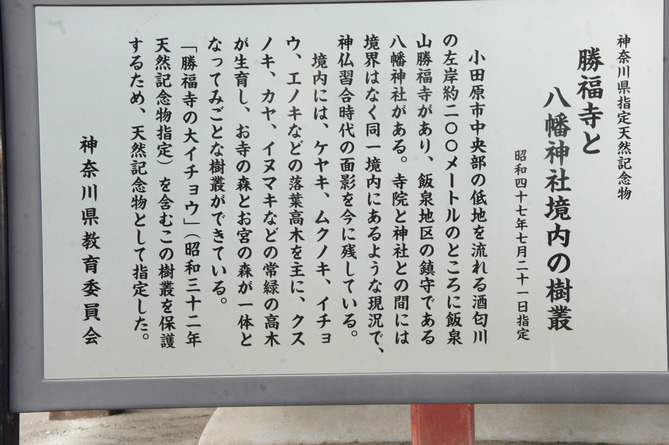 神奈川県指定天然記念物
勝福寺と
八幡神社境内の樹叢
昭和四十七年七月二十一日指定
小田原市中央部の低地を流れる酒匂川
の左岸約二〇〇メートルのところに飯泉
山勝福寺があり、飯泉地区の鎮守である
八幡神社がある。寺院と神社との間には
境界はなく同一境内にあるような現況で、
神仏習合時代の面影を今に残している。
境内には、ケヤキ、ムクノキ、イチョ
ウ、エノキなどの落葉高木を主に、クス
ノキ、カヤ、イヌマキなどの常緑の高木
が生育し、お寺の森とお宮の森が一体と
なってみごとな樹叢ができている。
「勝福寺の大イチョウ」（昭和三十二年
天然記念物指定）を含むこの樹叢を保護
するため、天然記念物として指定した。
神奈川県教育委員会